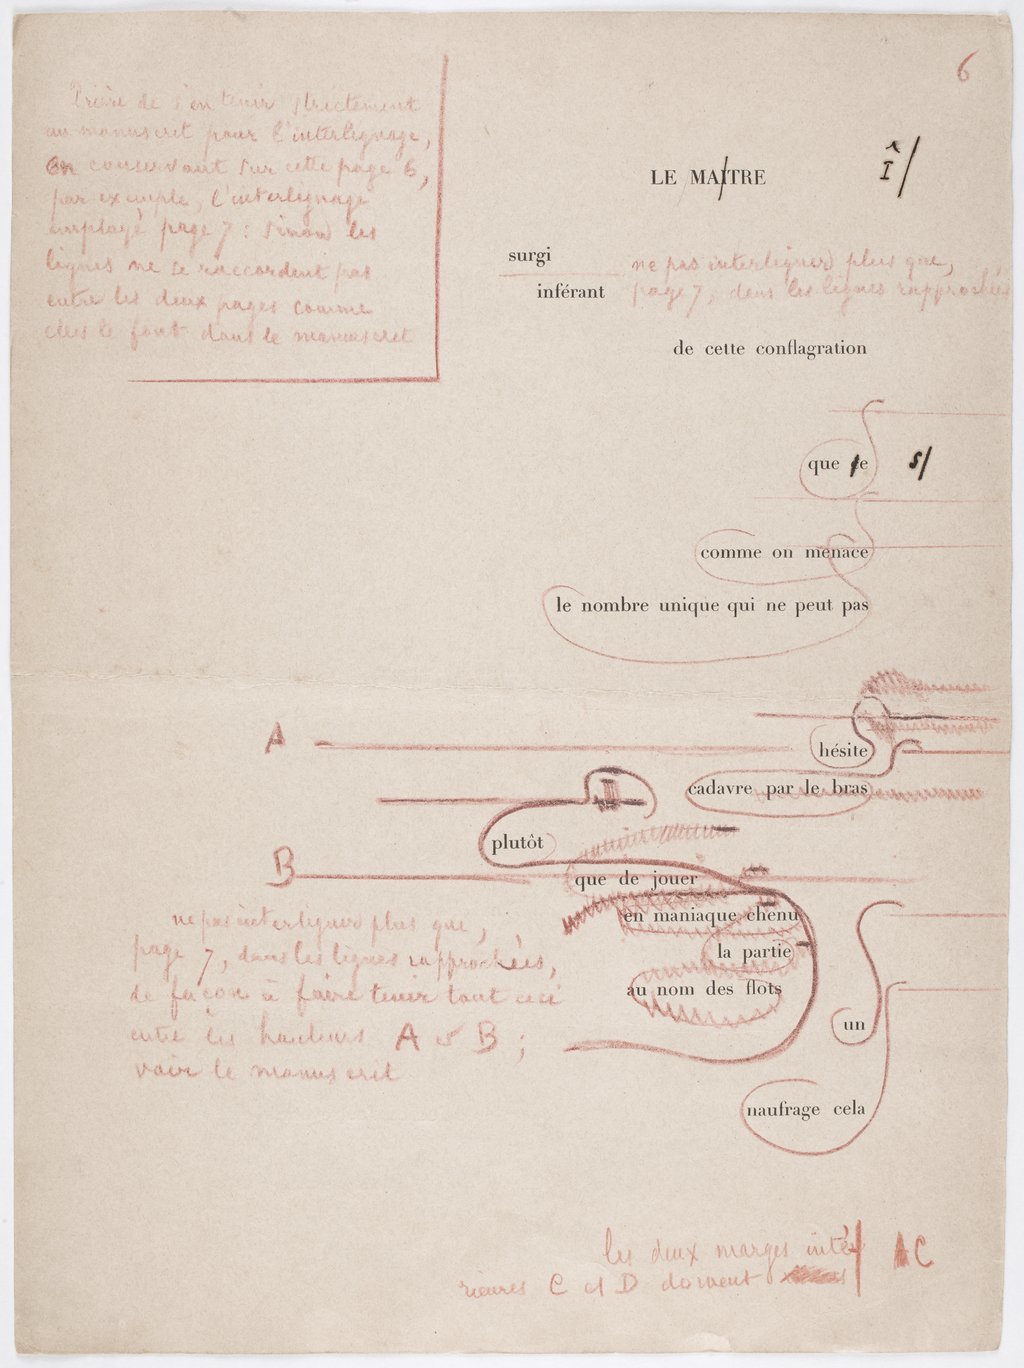 6
Prière de s'en tenir strictement
au manuscrit pour l'interlignage,
en conservant sur cette page 6,
par exemple, l'interlignage
employé page 7 : sinon les
lignes ne se raccordent pas
entre les deux pages comme
elles le font dans le manuscrit
LE MAITRE
Î/
surgi
ne pas interligner plus que,
inférant
page 7, dans les lignes rapprochées
de cette conflagration
que le
s/
comme on menace
le nombre unique qui ne peut pas
A
hésite
cadavre par le bras
plutôt
B
que de jouer
en maniaque chenu
la partie
au nom des flots
ne pas interligner plus que,
page 7, dans les lignes rapprochées,
de façon à faire tenir tout ceci
entre les hauteurs A et B ;
voir le manuscrit
un
naufrage cela
les deux marges inté-
rieures C et D doivent
AC